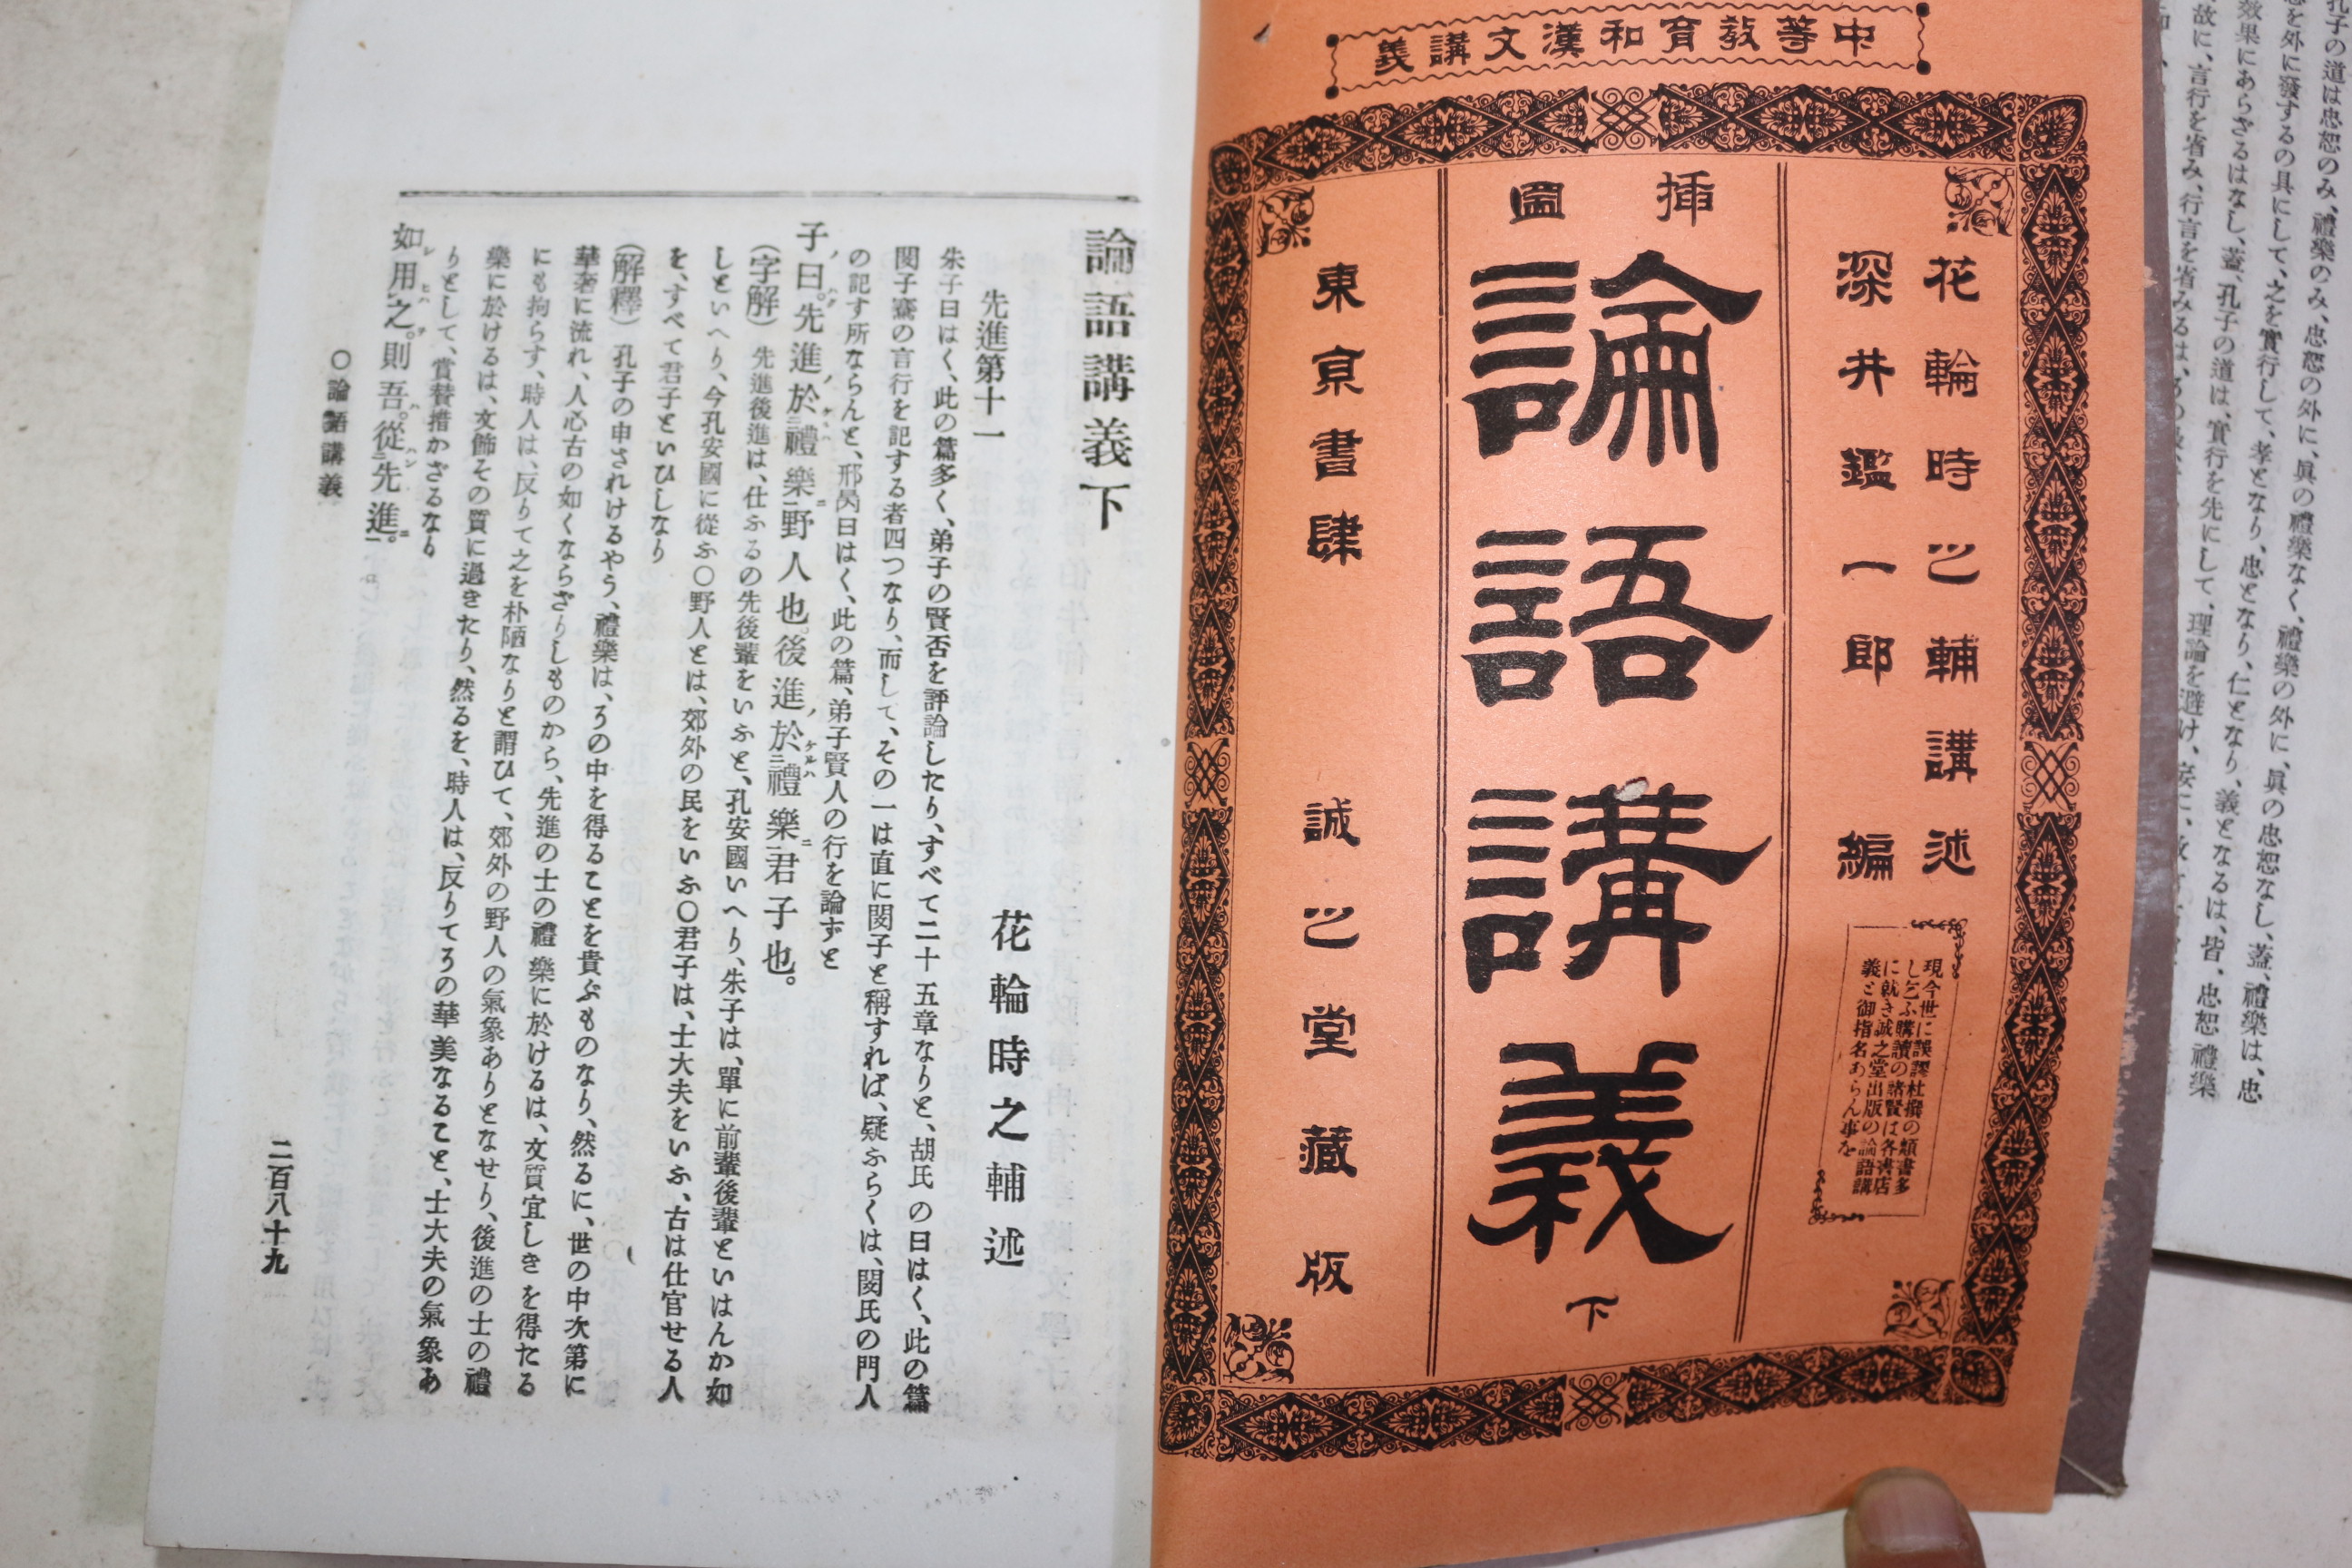 中等敎育和漢文講義
花輪時之輔講述
深井鑑一郎編
現今世に誤謬杜撰の類書多
し乞ふ購讀の諸賢は各書店
に就き誠之堂出版の論語講
義と御指名あらん事を
挿圖
論語講義
下
東京書肆
誠之堂藏版
論語講義下
花輪時之輔述
先進第十一
朱子曰はく、此の篇多く、弟子の賢否を評論したり、すべて二十五章なりと、胡氏の曰はく、此の篇
閔子騫の言行を記する者四つなり、而して、その一は直に閔子と稱すれば、疑ふらくは、閔氏の門人
の記す所ならんと、邢昺曰はく、此の篇、弟子賢人の行を論ずと
子曰。先進於禮樂野人也。後進於禮樂君子也。
(字解) 先進後進は、仕ふるの先後輩をいふと、孔安國いへり、朱子は、單に前輩後輩といはんか如
しといへり、今孔安國に從ふ〇野人とは、郊外の民をいふ〇君子は、士大夫をいふ、古は仕官せる人
を、すべて君子といひしなり
(解釋) 孔子の申されけるやう、禮樂は、その中を得ることを貴ぶものなり、然るに、世の中次第に
華奢に流れ、人心古の如くならざりしものから、先進の士の禮樂に於けるは、文質宜しきを得たる
にも拘らす、時人は、反りて之を朴陋なりと謂ひて、郊外の野人の氣象ありとなせり、後進の士の禮
樂に於けるは、文飾その質に過きたり、然るを、時人は、反りてその華美なること、士大夫の氣象あ
りとして、賞賛措かざるなり
如用之。則吾。從先進。
〇論語講義
二百八十九
孔子の道は忠恕のみ、禮樂のみ、忠恕の外に、眞の禮樂なく、禮樂の外に、眞の忠恕なし、蓋、禮樂は、忠
を外に發するの具にして、之を實行して、孝となり、忠となり、仁となり、義となるは、皆、忠恕禮樂
効果にあらざるはなし、蓋、孔子の道は、實行を先にして、理論を避け
故に、言行を省み、行言を省みるは